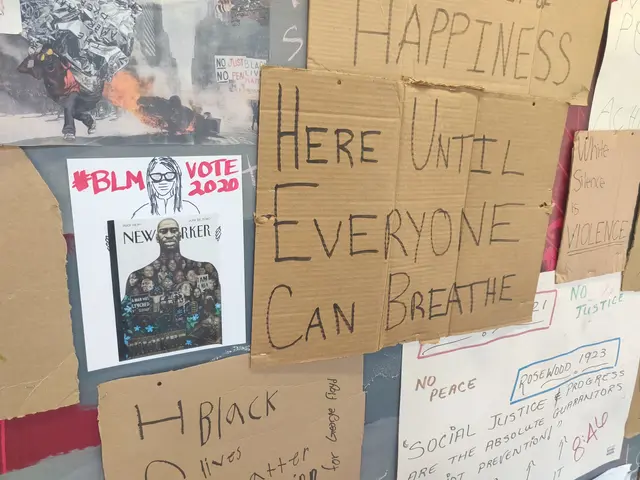 HAPPINESS
NO JUST
NO PE
#BLM VOTE
2020
NEW YORKER
HERE UNTIL
EVERYONE
CAN BREATHE
White
Silence
is
VIOLENCE
NO
JUSTICE
21
NO
PEACE
ROSEWOOD 1923
"SOCIAL JUSTICE & PROGRESS
ARE THE ABSOLUTE GUARANTORS
PREVENTION!"
8:46
IT
H Black
lives
for George Floyd